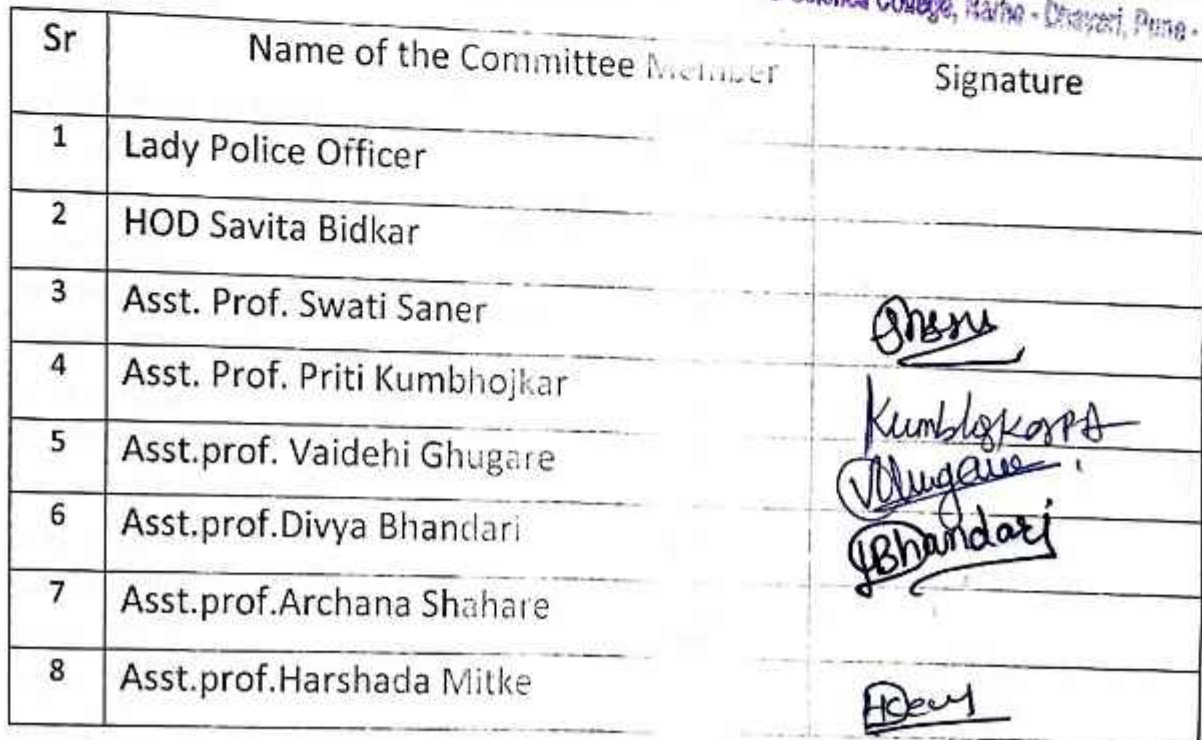 College, Narhe - Dhayari, Pune -
Sr Name of the Committee Member Signature
1 Lady Police Officer
2 HOD Savita Bidkar
3 Asst. Prof. Swati Saner
4 Asst. Prof. Priti Kumbhojkar
5 Asst.prof. Vaidehi Ghugare
6 Asst.prof.Divya Bhandari Bhandari
7 Asst.prof.Archana Shahare
8 Asst.prof.Harshada Mitke